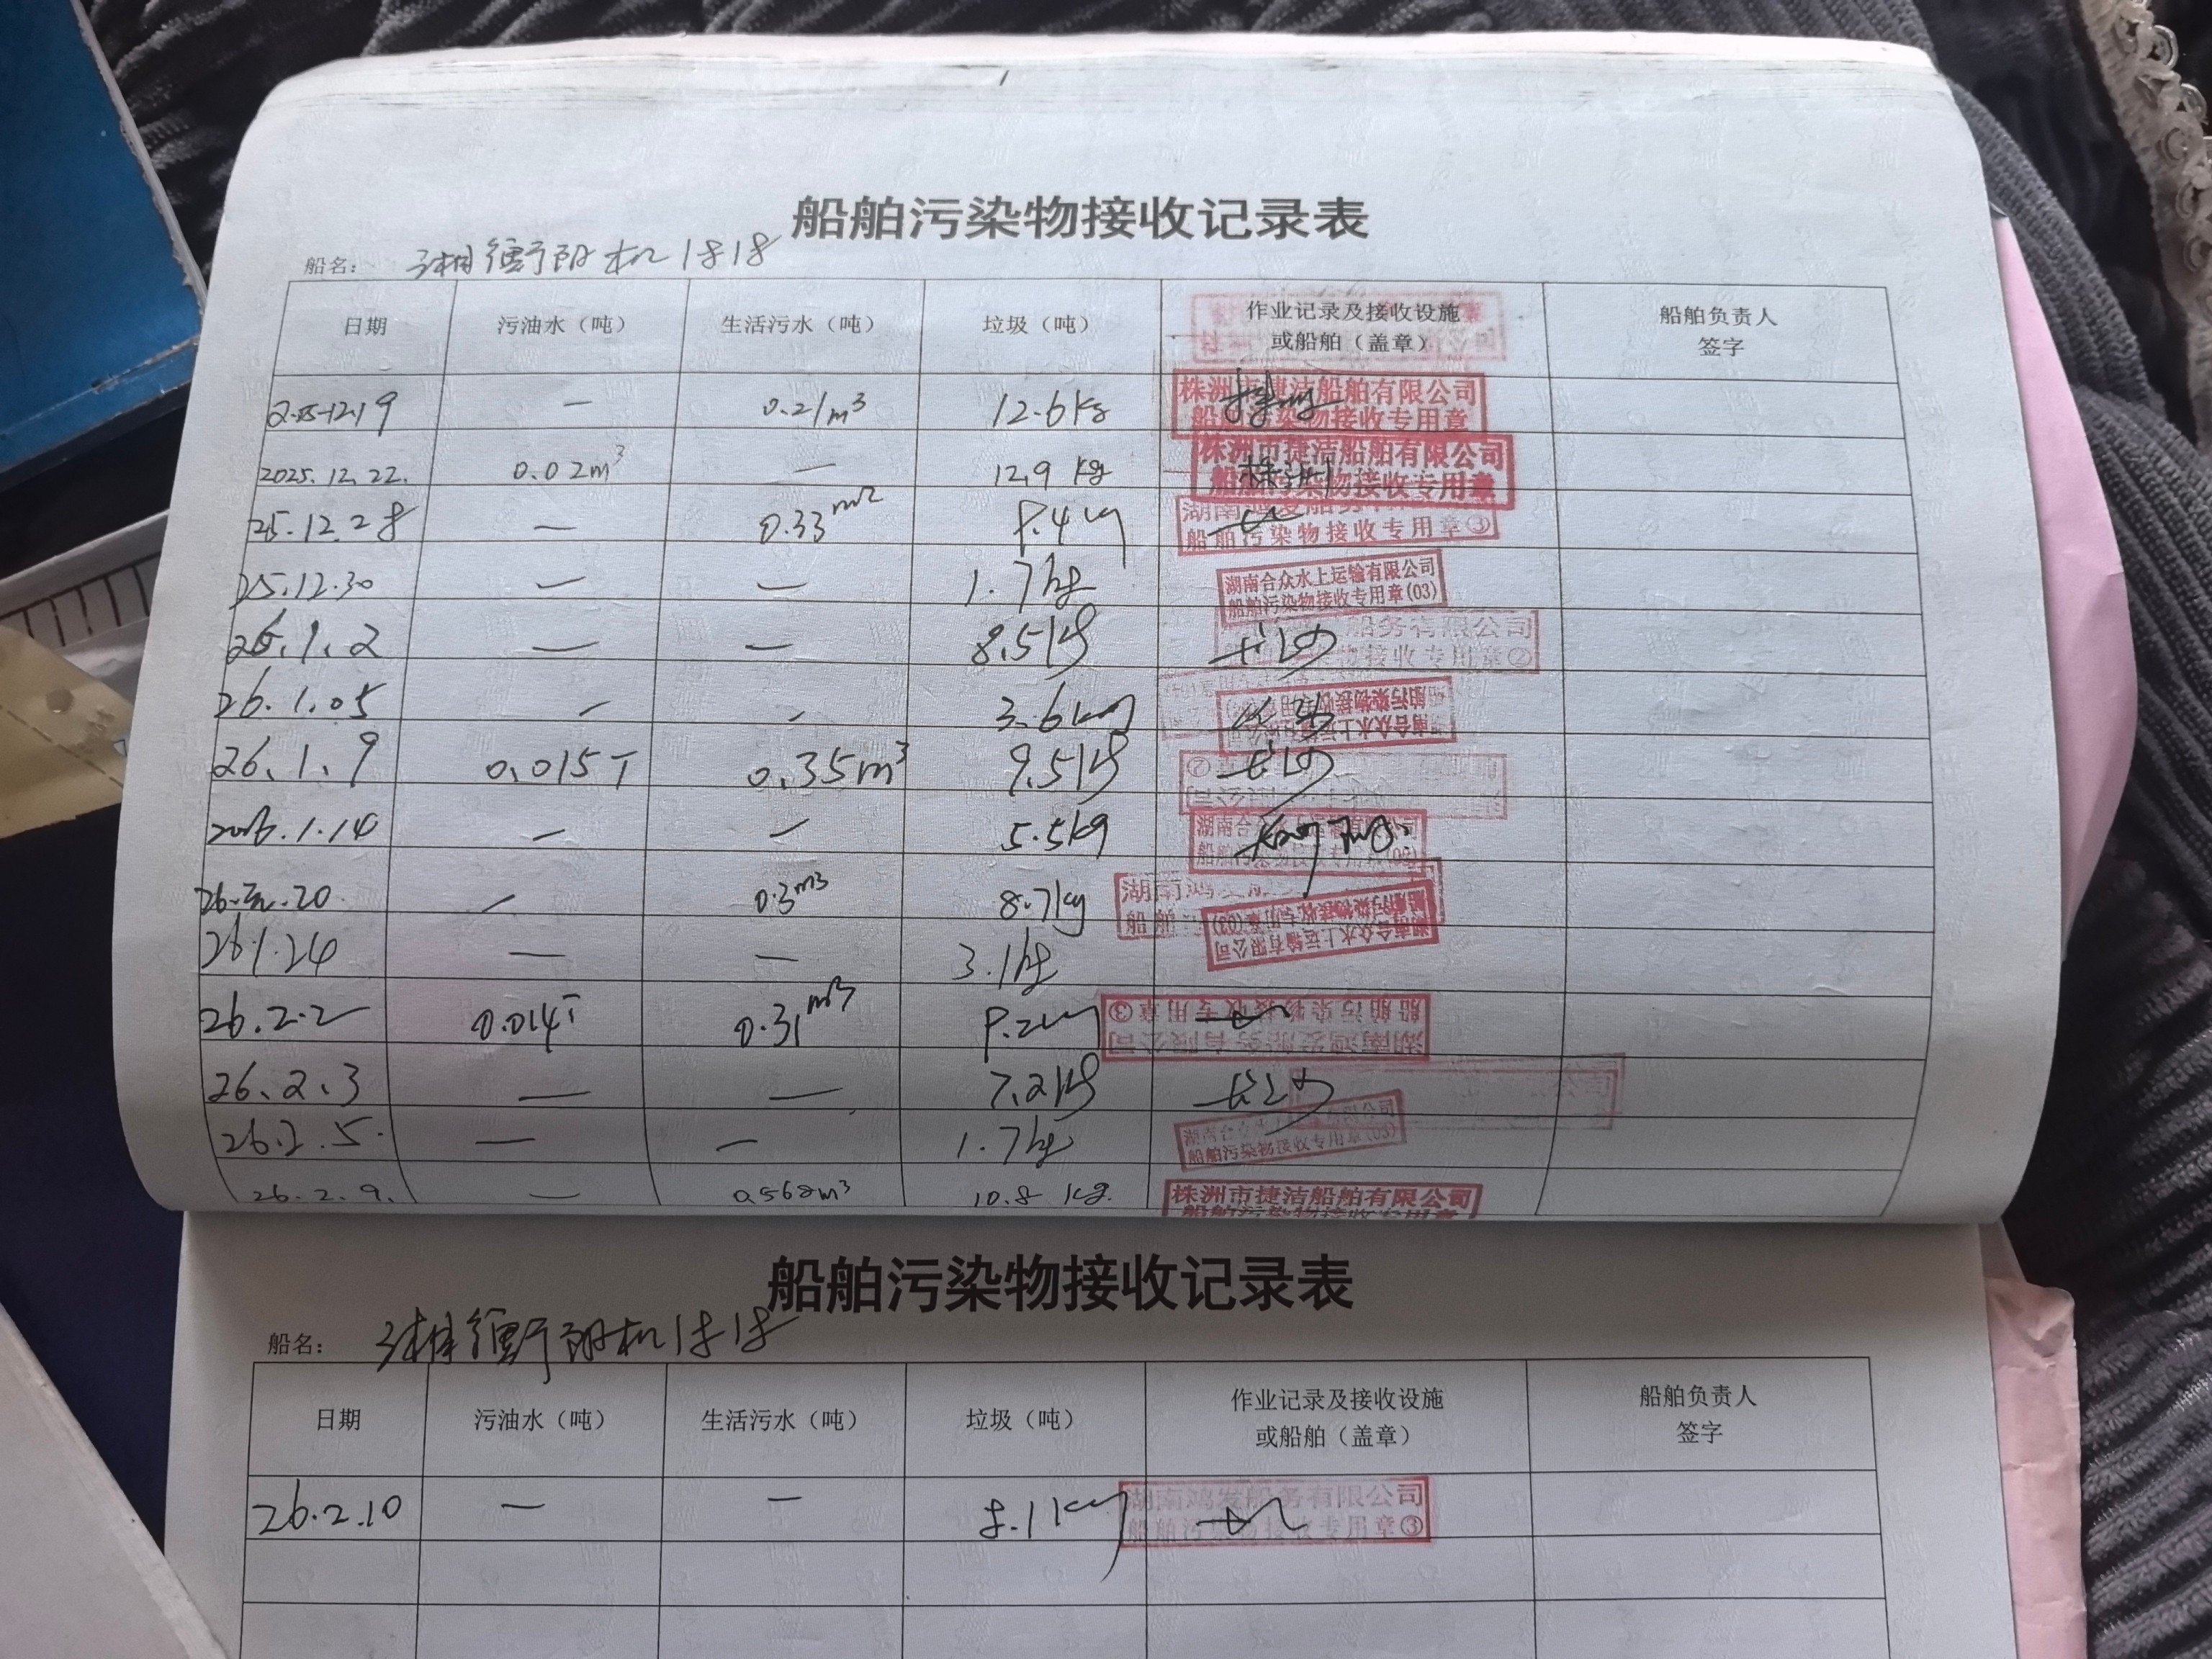 船舶污染物接收记录表
船名： 湘衡阳机1818
日期 污油水（吨） 生活污水（吨） 垃圾（吨） 作业记录及接收设施或船舶（盖章） 船舶负责人签字
2025.12.19 — 0.21m³ 12.6kg 株洲市捷洁船舶有限公司 船舶污染物接收专用章
2025.12.22. 0.02m³ — 12.9 kg 株洲 株洲市捷洁船舶有限公司 船舶污染物接收专用章
25.12.28 — 0.33 8.4kg 湖南鸿发船务 船舶污染物接收专用章③
25.12.30 — — 1.7kg 湖南合众水上运输有限公司 船舶污染物接收专用章(03)
26.1.2 — — 8.5kg 船务有限公司 接收专用章②
26.1.05 — — 3.6kg 湖南合众水上 船舶污染物接收
26.1.9 0.015T 0.35m³ 9.5kg ②
2026.1.14 — — 5.5kg 湖南合众 船舶污染物接收
26.元.20. — 0.3m3 8.7kg 湖南鸿发 船舶
26.1.24 — — 3.1kg 湖南合众水上运输有限公司 船舶污染物接收专用章(03)
26.2.2 0.014T 0.31m3 8.2kg 湖南鸿发船务有限公司 船舶污染物接收专用章③
26.2.3 — — 7.2kg
26.2.5. — — 1.7kg 湖南合众 船舶污染物接收专用章(03)
26.2.9. — 0.568m³ 10.8 kg. 株洲市捷洁船舶有限公司 船舶污染物接收专用章
船舶污染物接收记录表
船名： 湘衡阳机1818
日期 污油水（吨） 生活污水（吨） 垃圾（吨） 作业记录及接收设施或船舶（盖章） 船舶负责人签字
26.2.10 — — 8.1kg 湖南鸿发船务有限公司 船舶污染物接收专用章③